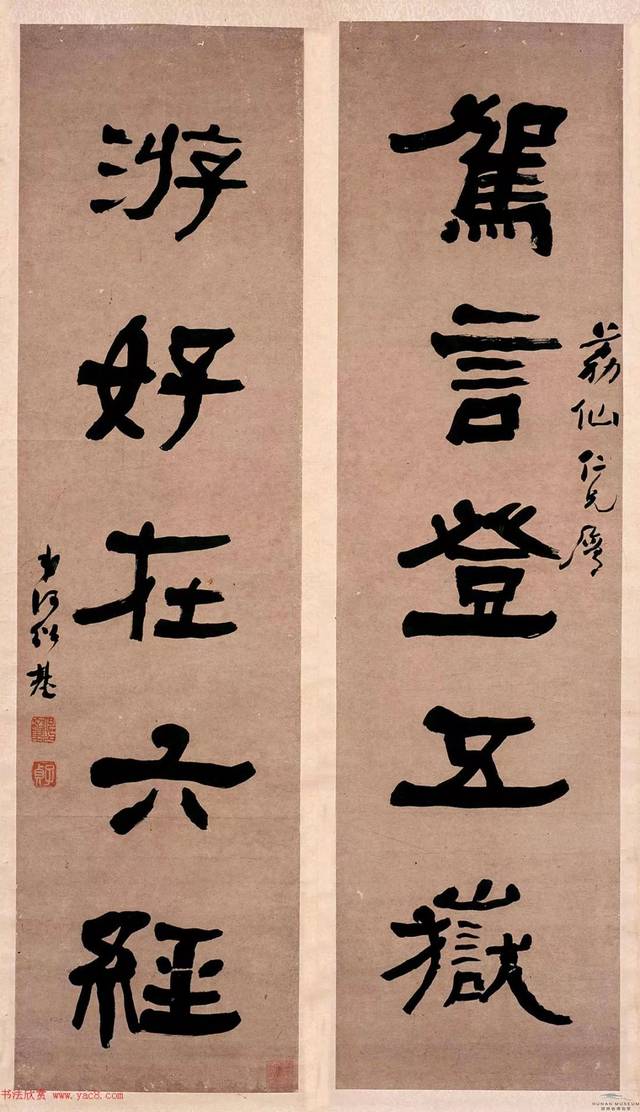 駕言登五嶽
荔仙仁兄屬
游好在六經
弟何紹基
子貞
书法欣赏 www.yac8.com
HUNAN MUSEUM